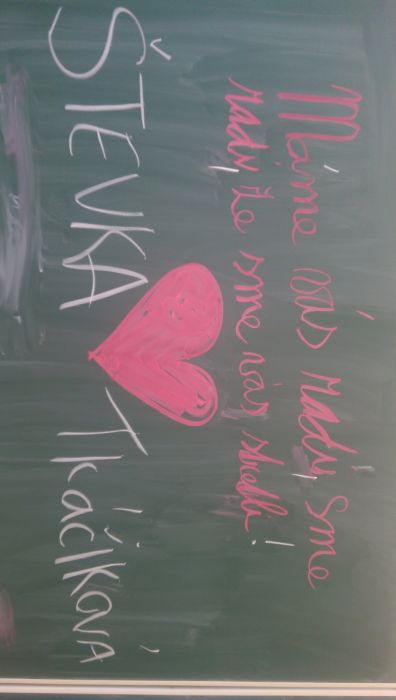 Máme vás radi, sme
radi, že sme vás stretli!
ŠTEVKA Tkáčiková